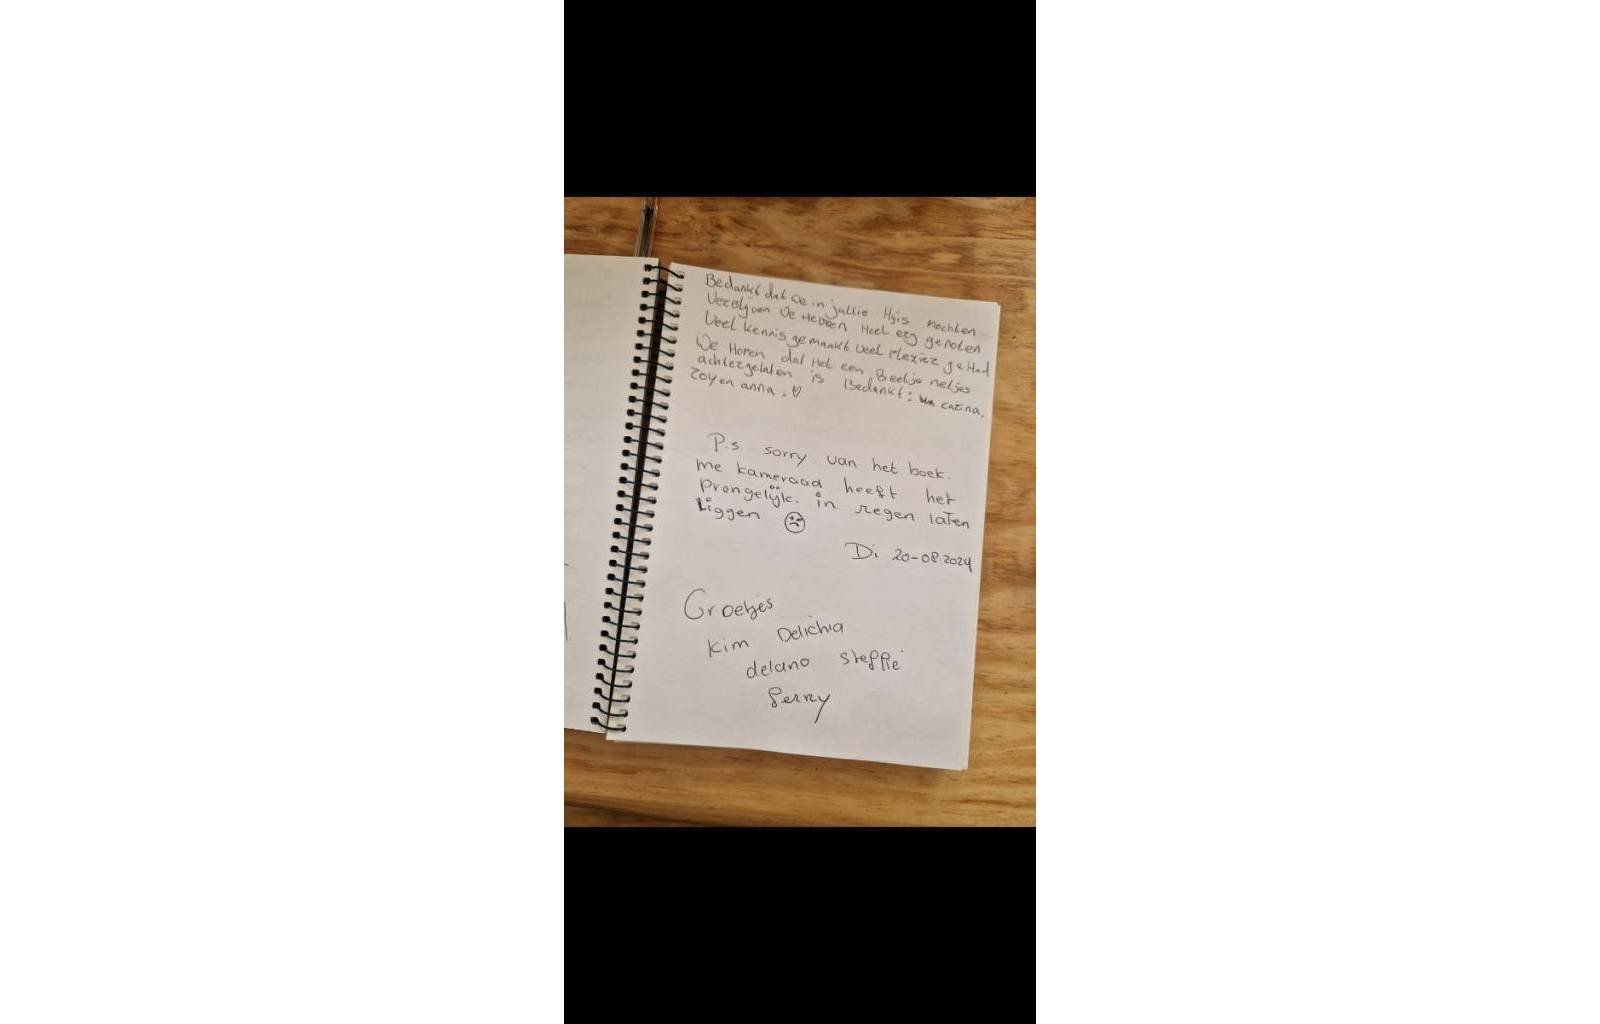 Bedankt dat we in jullie Hyis mochten
Verblijven We Hebben Heel erg genoten
Veel kennis gemaakt veel Plezier geHad
We Hopen dat Het een Beetje netjes
achtergelaten is Bedankt: carina,
Zoy en anna. ♡
P.s sorry van het boek.
me kameraad heeft het
Prongelijk. in regen laten
Liggen ☹
Di 20-08-2024
Groetjes
Kim Delichia
delano steffie
Gerry